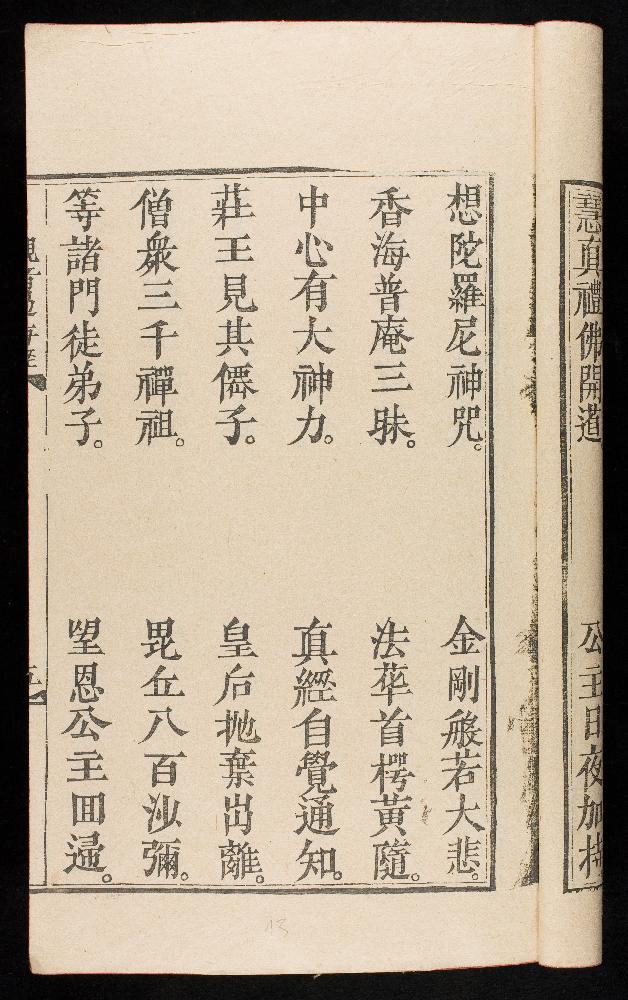 慧真禮佛開道 公主日夜加持
想陀羅尼神咒。 金剛般若大悲。
香海普庵三昧。 法華首楞黃隨。
中心有大神力。 真經自覺通知。
莊王見其僫子。 皇后抛棄出離。
僧衆三千禪祖。 毘丘八百沙彌。
等諸門徒弟子。 望恩公主回歸。